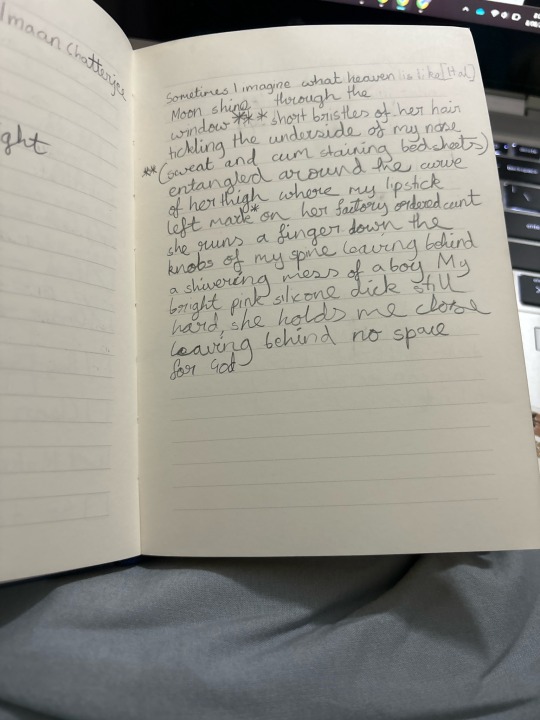 Imaan Chatterjee
ght
Sometimes I imagine what heaven is like [Hal]
Moon shine through the
window *** short bristles of her hair
tickling the underside of my nose
** (sweat and cum staining bedsheets)
entangled around the curve
of her thigh where my lipstick
left mark* on her factory ordered cunt
she runs a finger down the
knobs of my spine leaving behind
a shivering mess of a boy My
bright pink silcone dick still
hard, she holds me close
leaving behind no space
for God